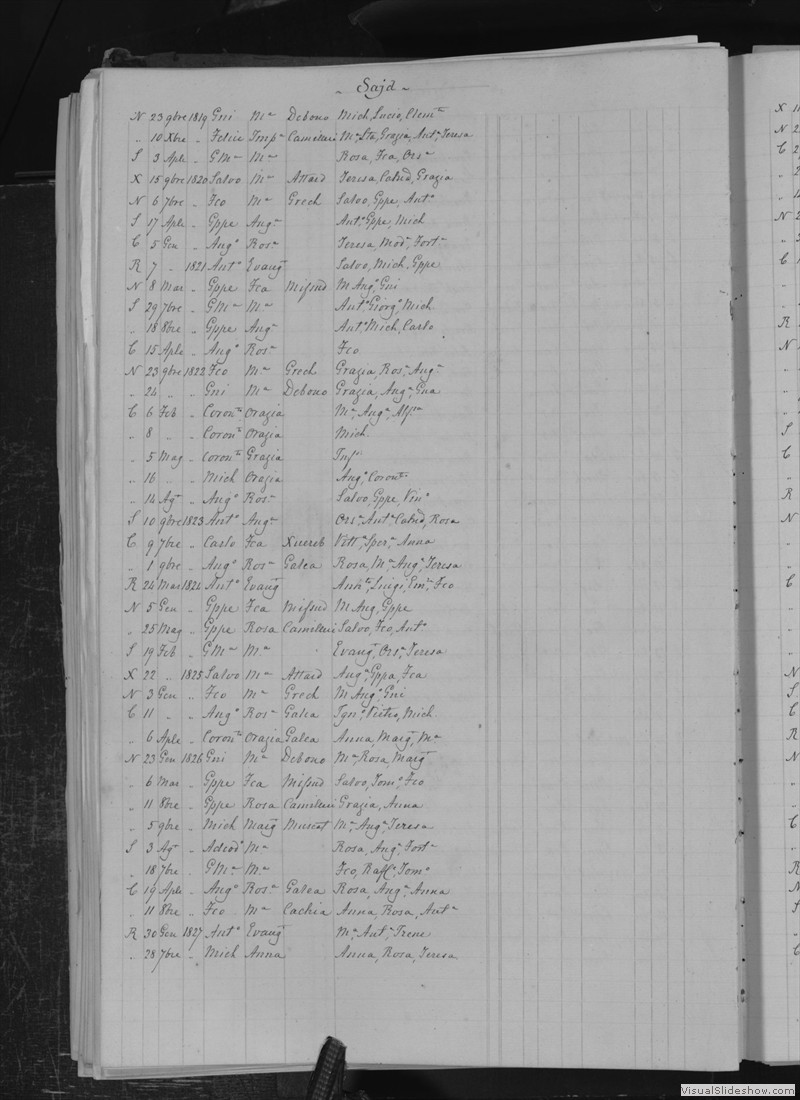 ~ Sajd ~
N 23 9bre 1819 Gni Ma Debono Mich, Lucio, Clemte
„ 10 Xbre „ Felice Impa Camilleri Ma Sta, Grazia, Anta, Teresa
S 3 Aple „ GMa Ma Rosa, Fca, Orsa
X 15 9bre 1820 Salvo Ma Attard Teresa, Catnd, Grazia
N 6 7bre „ Fco Ma Grech Salvo, Gppe, Anto
S 17 Aple „ Gppe Anga Anto, Gppe, Mich
C 5 Gen „ Ango Rosa Teresa, Modo, Forta
R 7 „ 1821 Anto Evang Salvo, Mich, Gppe
N 8 Mar „ Gppe Fca Mifsud M Anga, Gni
S 29 7bre „ GMa Ma Anto, Giorgo, Mich
„ 18 8bre „ Gppe Anga Anto, Mich, Carlo
C 15 Aple „ Ango Rosa Fco
N 23 9bre 1822 Fco Ma Grech Grazia, Rosa, Anga
„ 24 „ „ Gni Ma Debono Grazia, Anga, Gna
C 6 Feb „ Coronto Orazia Ma, Anga
„ 8 „ „ Coronto Orazia Mich
„ 5 Mag „ Coronto Grazia
„ 16 „ „ Mich Orazia Ango, Coronto
„ 14 Agto „ Ango Rosa Salvo, Gppe, Vino
S 10 9bre 1823 Anto Anga Orsa, Anta, Catnd, Rosa
C 9 7bre „ Carlo Fca Xuereb Vetta, Spera, Anna
„ 1 9bre „ Ango Rosa Galea Rosa, Ma Anga, Teresa
R 24 Mar 1824 Anto Evang Luigi, Emo, Fco
N 5 Gen „ Gppe Fca Mifsud M Ang, Gppe
„ 25 Mag „ Gppe Rosa Camilleri Salvo, Fco, Anto
S 19 Feb „ GMa Ma Evang, Orsa, Teresa
X 22 „ 1825 Salvo Ma Attard Anga, Gppa, Fca
N 3 Gen „ Fco Ma Grech M Anga, Gni
C 11 „ „ Ango Rosa Galea Igno, Pietro, Mich
„ 6 Aple „ Coronto Orazia Galea Anna, Marg, Ma
N 23 Gen 1826 Gni Ma Debono Ma Rosa, Marg
„ 6 Mar „ Gppe Fca Mifsud Salvo, Tomo, Fco
„ 11 8bre „ Gppe Rosa Camilleri Grazia, Anna
„ 5 9bre „ Mich Marg Muscat Ma, Anga, Teresa
S 3 Agto „ Adeodo Ma Rosa, Anga, Forta
„ 18 7bre „ GMa Ma Fco, Raffo, Tomo
C 19 Aple „ Ango Rosa Galea Rosa, Anga, Anna
„ 11 8bre „ Fco Ma Cachia Anna, Rosa, Anta
R 30 Gen 1827 Anto Evang Ma, Anta, Irene
„ 28 7bre „ Mich Anna Anna, Rosa, Teresa
VisualSlideshow.com